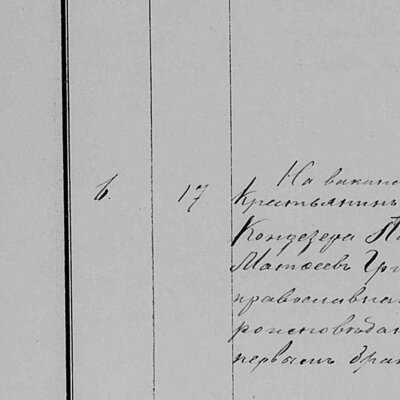 6. 17 На вакан
Крестьянинъ
Кондезера
Матѳеевъ Гри
православна
роисповѣдан
первымъ брак